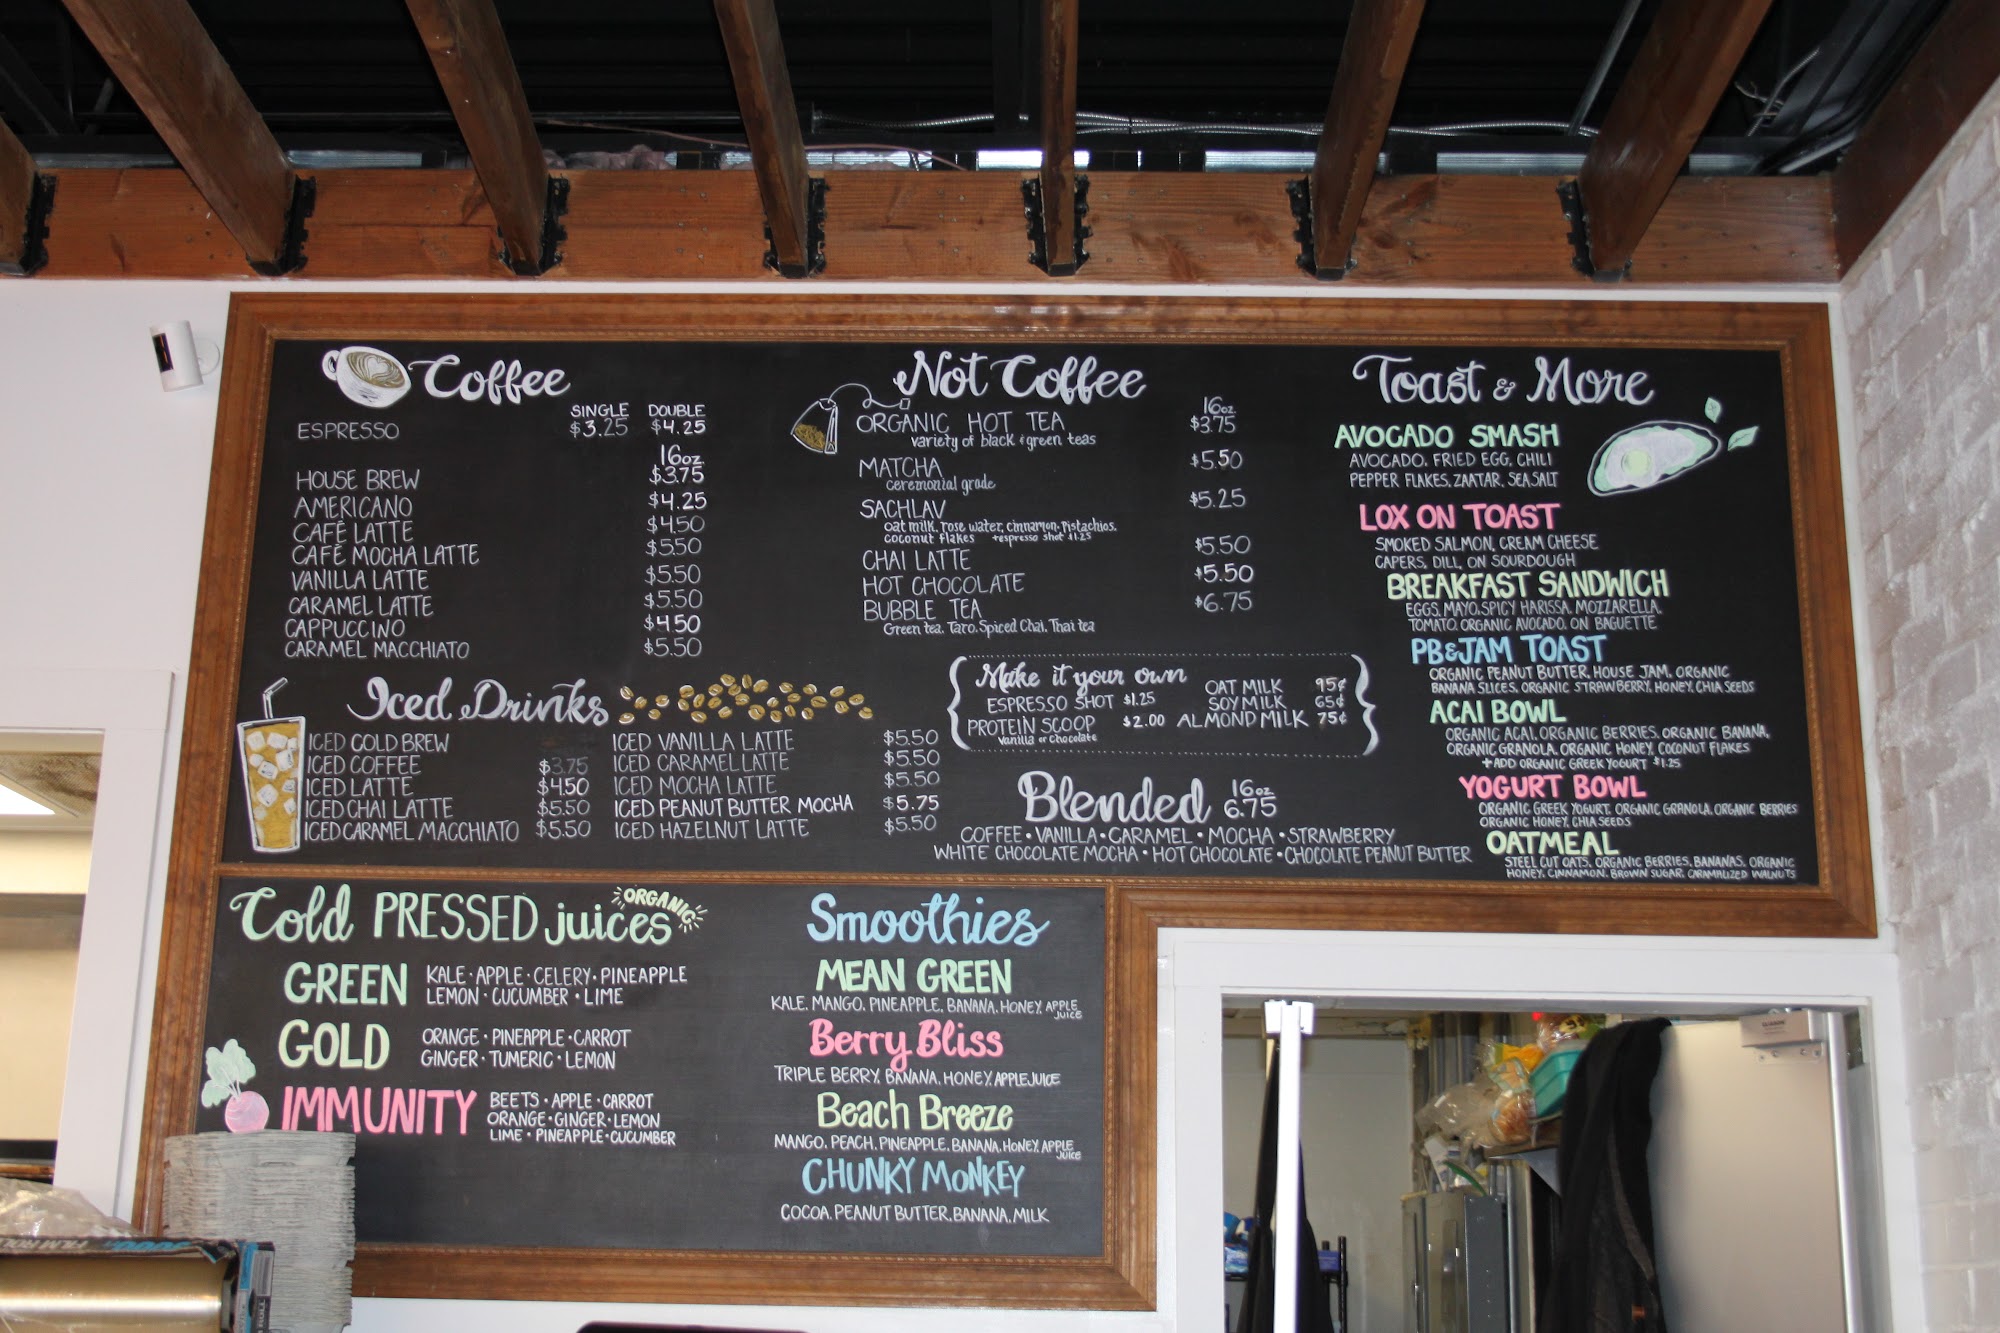 Coffee
SINGLE DOUBLE
ESPRESSO $3.25 $4.25
16oz
HOUSE BREW $3.75
AMERICANO $4.25
CAFÉ LATTE $4.50
CAFÉ MOCHA LATTE $5.50
VANILLA LATTE $5.50
CARAMEL LATTE $5.50
CAPPUCCINO $4.50
CARAMEL MACCHIATO $5.50
Iced Drinks
ICED COLD BREW
ICED COFFEE $3.75
ICED LATTE $4.50
ICED CHAI LATTE $5.50
ICED CARAMEL MACCHIATO $5.50
ICED VANILLA LATTE $5.50
ICED CARAMEL LATTE $5.50
ICED MOCHA LATTE $5.50
ICED PEANUT BUTTER MOCHA $5.75
ICED HAZELNUT LATTE $5.50
Not Coffee
16oz
ORGANIC HOT TEA $3.75
variety of black & green teas
MATCHA $5.50
ceremonial grade
SACHLAV $5.25
oat milk, rose water, cinnamon, pistachios,
coconut flakes +espresso shot $1.25
CHAI LATTE $5.50
HOT CHOCOLATE $5.50
BUBBLE TEA $6.75
Green tea, Taro, Spiced Chai, Thai tea
Make it your own
ESPRESSO SHOT $1.25
PROTEIN SCOOP $2.00
vanilla or chocolate
OAT MILK 95¢
SOY MILK 65¢
ALMOND MILK 75¢
Blended 16oz 6.75
COFFEE • VANILLA • CARAMEL • MOCHA • STRAWBERRY
WHITE CHOCOLATE MOCHA • HOT CHOCOLATE • CHOCOLATE PEANUT BUTTER
Toast & More
AVOCADO SMASH
AVOCADO, FRIED EGG, CHILI
PEPPER FLAKES, ZAATAR, SEA SALT
LOX ON TOAST
SMOKED SALMON, CREAM CHEESE
CAPERS, DILL, ON SOURDOUGH
BREAKFAST SANDWICH
EGGS, MAYO, SPICY HARISSA, MOZZARELLA,
TOMATO, ORGANIC AVOCADO, ON BAGUETTE
PB&JAM TOAST
ORGANIC PEANUT BUTTER, HOUSE JAM, ORGANIC
BANANA SLICES, ORGANIC STRAWBERRY, HONEY, CHIA SEEDS
ACAI BOWL
ORGANIC ACAI, ORGANIC BERRIES, ORGANIC BANANA,
ORGANIC GRANOLA, ORGANIC HONEY, COCONUT FLAKES
+ADD ORGANIC GREEK YOGURT $1.25
YOGURT BOWL
ORGANIC GREEK YOGURT, ORGANIC GRANOLA, ORGANIC BERRIES
ORGANIC HONEY, CHIA SEEDS
OATMEAL
STEEL CUT OATS, ORGANIC BERRIES, BANANAS, ORGANIC
HONEY, CINNAMON, BROWN SUGAR, CARAMALIZED WALNUTS
Cold PRESSED juices ORGANIC
GREEN
KALE • APPLE • CELERY • PINEAPPLE
LEMON • CUCUMBER • LIME
GOLD
ORANGE • PINEAPPLE • CARROT
GINGER • TUMERIC • LEMON
IMMUNITY
BEETS • APPLE • CARROT
ORANGE • GINGER • LEMON
LIME • PINEAPPLE • CUCUMBER
Smoothies
MEAN GREEN
KALE, MANGO, PINEAPPLE, BANANA, HONEY, APPLE
JUICE
Berry Bliss
TRIPLE BERRY, BANANA, HONEY, APPLE JUICE
Beach Breeze
MANGO, PEACH, PINEAPPLE, BANANA, HONEY, APPLE
JUICE
CHUNKY MONKEY
COCOA, PEANUT BUTTER, BANANA, MILK